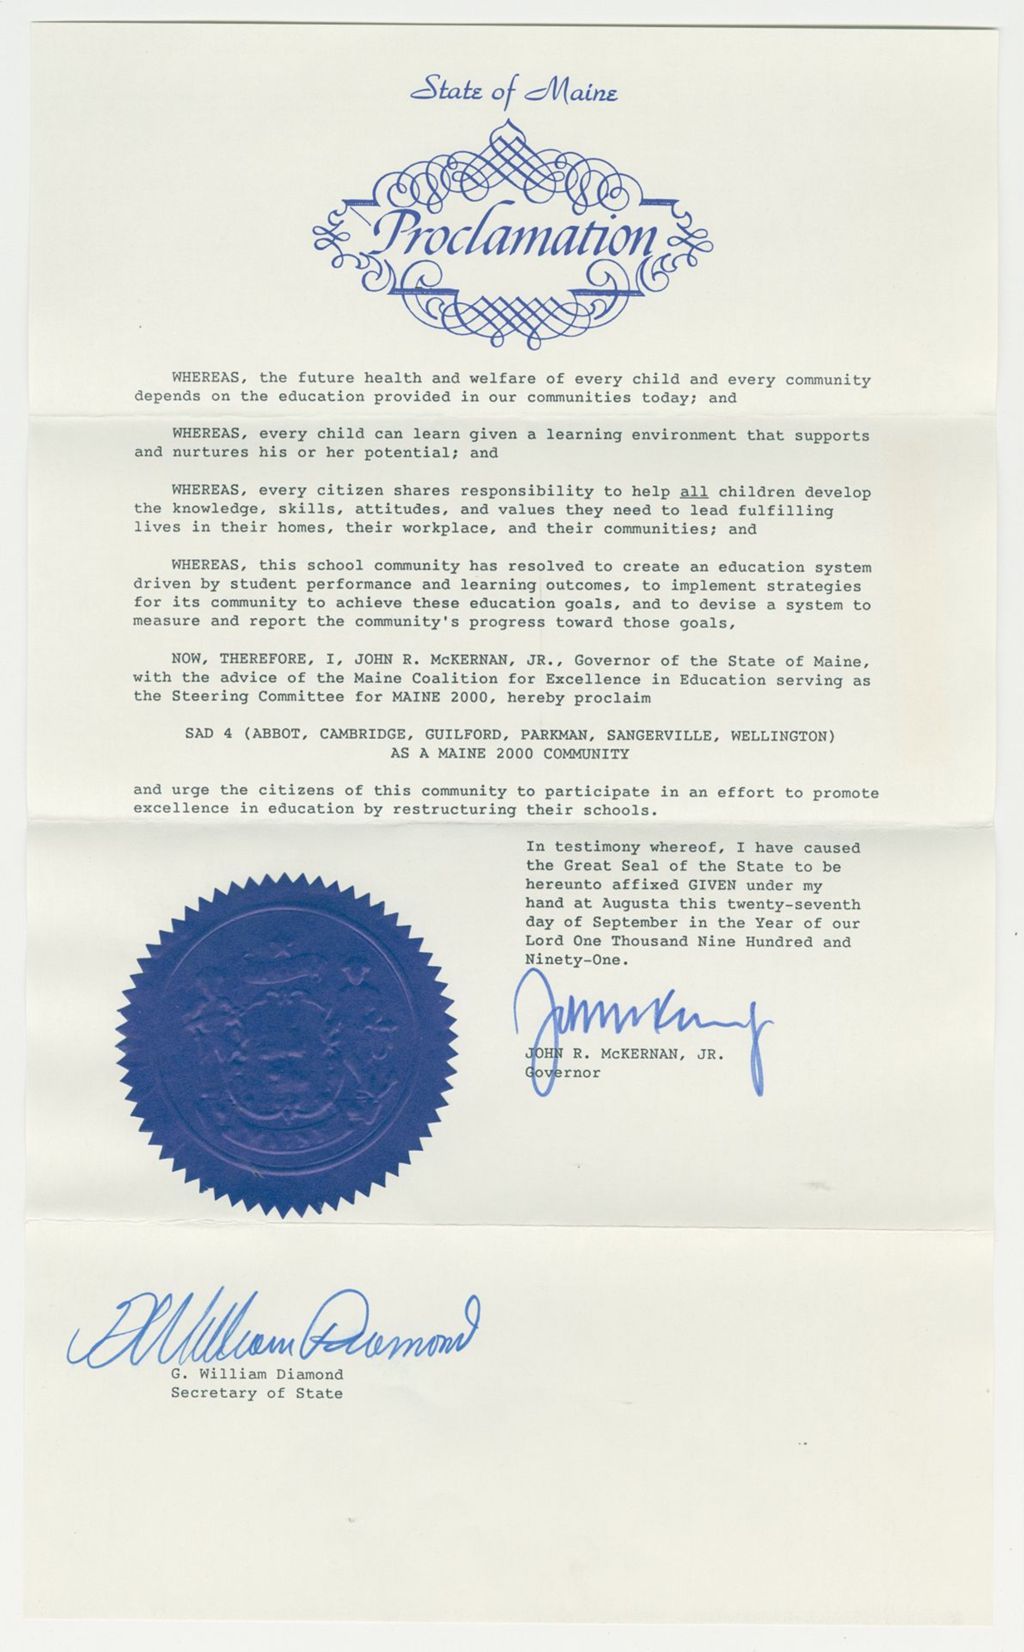 State of Maine
Proclamation
WHEREAS, the future health and welfare of every child and every community
depends on the education provided in our communities today; and
WHEREAS, every child can learn given a learning environment that supports
and nurtures his or her potential; and
WHEREAS, every citizen shares responsibility to help all children develop
the knowledge, skills, attitudes, and values they need to lead fulfilling
lives in their homes, their workplace, and their communities; and
WHEREAS, this school community has resolved to create an education system
driven by student performance and learning outcomes, to implement strategies
for its community to achieve these education goals, and to devise a system to
measure and report the community's progress toward those goals,
NOW, THEREFORE, I, JOHN R. McKERNAN, JR., Governor of the State of Maine,
with the advice of the Maine Coalition for Excellence in Education serving as
the Steering Committee for MAINE 2000, hereby proclaim
SAD 4 (ABBOT, CAMBRIDGE, GUILFORD, PARKMAN, SANGERVILLE, WELLINGTON)
AS A MAINE 2000 COMMUNITY
and urge the citizens of this community to participate in an effort to promote
excellence in education by restructuring their schools.
In testimony whereof, I have caused
the Great Seal of the State to be
hereunto affixed GIVEN under my
hand at Augusta this twenty-seventh
day of September in the Year of our
Lord One Thousand Nine Hundred and
Ninety-One.
JOHN R. McKERNAN, JR.
Governor
G. William Diamond
G. William Diamond
Secretary of State